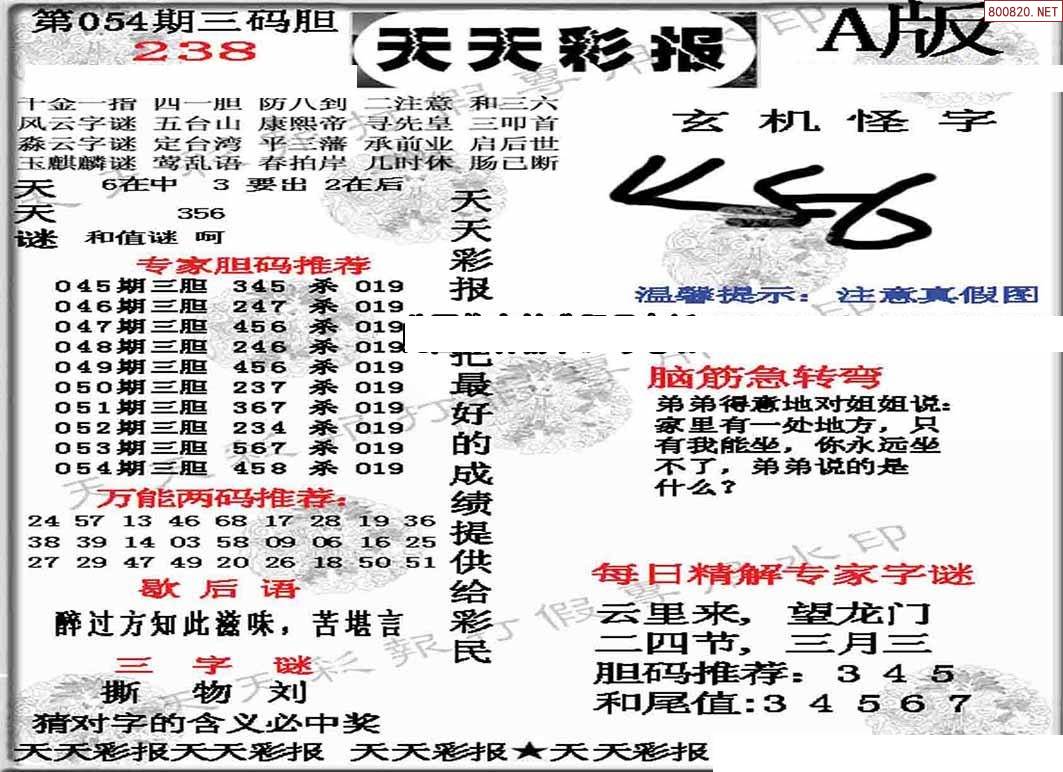 第054期三码胆
238
天天彩报
A版
800820.NET
千金一指 四一胆 防八到 二注意 和三六
风云字谜 五台山 康熙帝 寻先皇 三叩首
淼云字谜 定台湾 平三藩 承前业 启后世
玉麒麟谜 莺乱语 春拍岸 几时休 肠已断
天天谜
6在中 3 要出 2在后
356
和值谜 呵
专家胆码推荐
045期三胆 345 杀 019
046期三胆 247 杀 019
047期三胆 456 杀 019
048期三胆 246 杀 019
049期三胆 456 杀 019
050期三胆 237 杀 019
051期三胆 367 杀 019
052期三胆 234 杀 019
053期三胆 567 杀 019
054期三胆 458 杀 019
万能两码推荐:
24 57 13 46 68 17 28 19 36
38 39 14 03 58 09 06 16 25
27 29 47 49 20 26 18 50 51
歇后语
醉过方知此滋味，苦堪言
三字谜
撕 物 刘
猜对字的含义必中奖
天天彩报
把最好的成绩提供给彩民
玄机怪字
温馨提示: 注意真假图
脑筋急转弯
弟弟得意地对姐姐说:
家里有一处地方，只
有我能坐，你永远坐
不了，弟弟说的是
什么?
每日精解专家字谜
云里来，望龙门
二四节，三月三
胆码推荐: 3 4 5
和尾值:3 4 5 6 7
天天彩报天天彩报 天天彩报★天天彩报